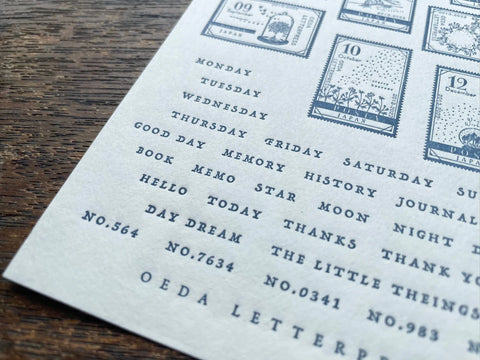 09
JAPAN
10
October
PONTA
JAPAN
12
December
JAPAN
MONDAY
TUESDAY
WEDNESDAY
THURSDAY FRIDAY SATURDAY
GOOD DAY MEMORY HISTORY JOURNAL
BOOK MEMO STAR MOON NIGHT
HELLO TODAY THANKS THANK
DAY DREAM THE LITTLE THEINGS
NO.564 NO.7634 NO.0341 NO.983
OEDA